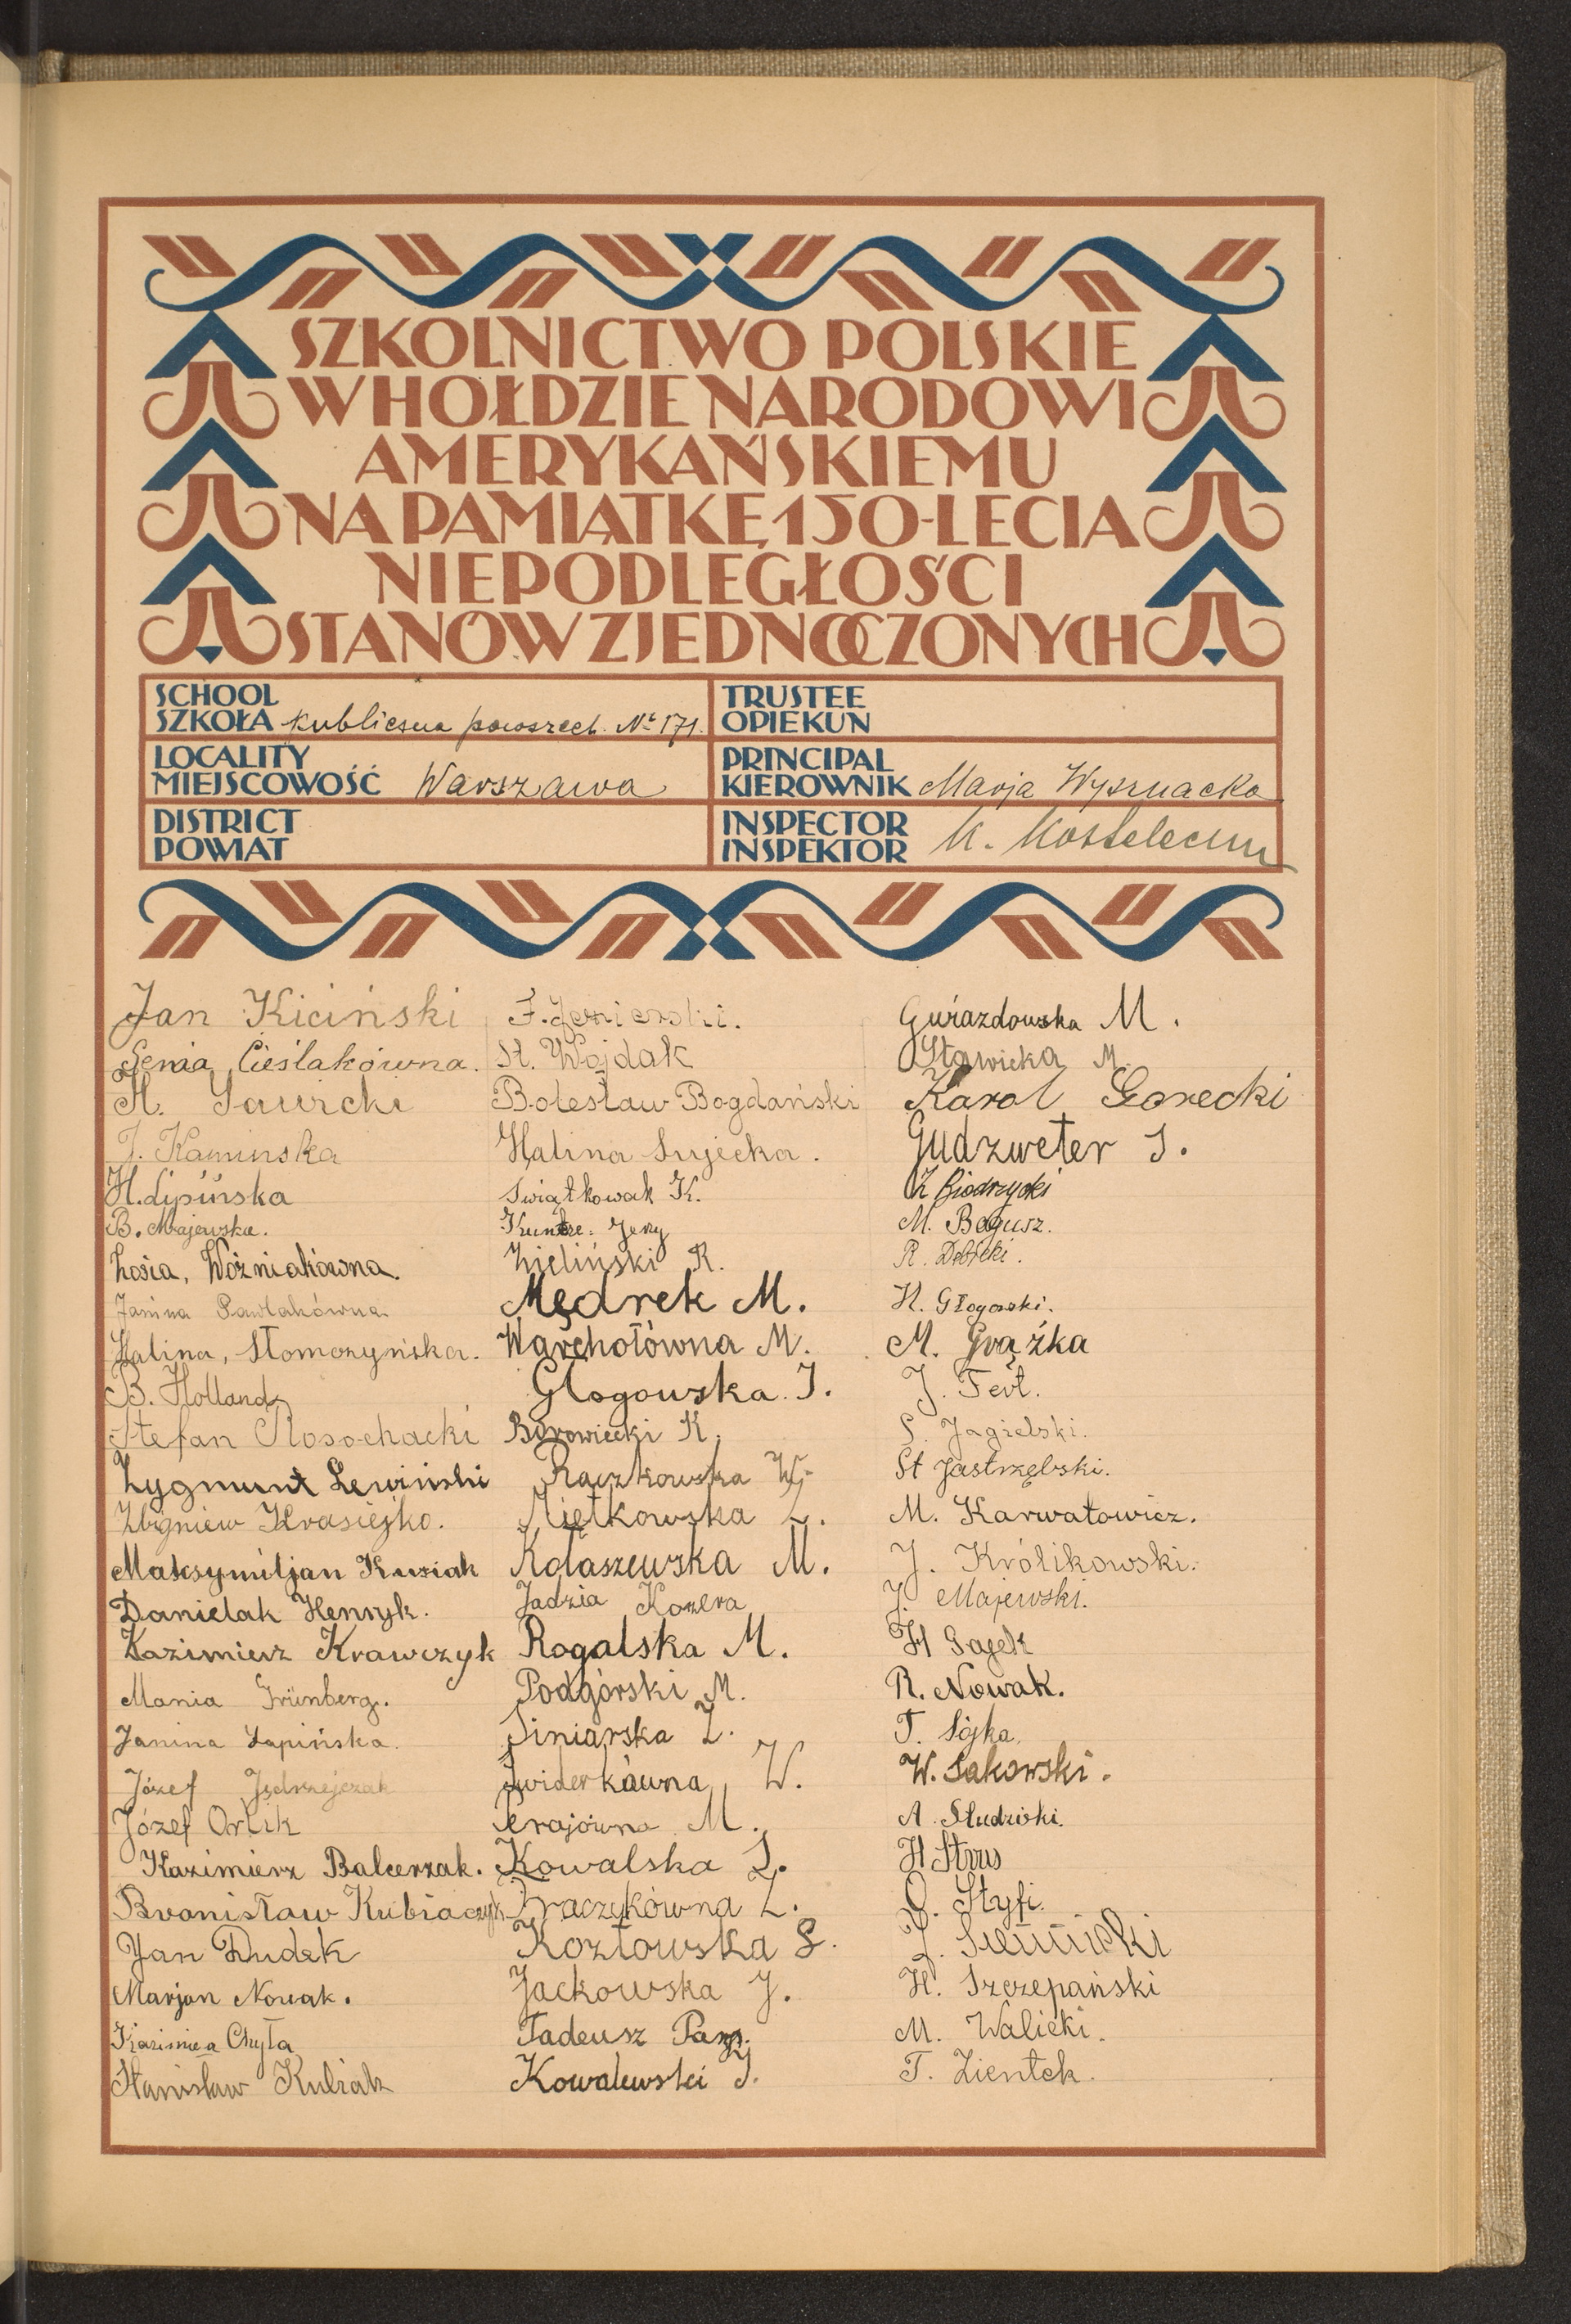 SZKOLNICTWO POLSKIE
W HOŁDZIE NARODOWI
AMERYKAŃSKIEMU
NA PAMIĄTKĘ 150-LECIA
NIEPODLEGŁOŚCI
STANÓW ZJEDNOCZONYCH
SCHOOL
SZKOŁA Publiczna powszech. № 171.
TRUSTEE
OPIEKUN
LOCALITY
MIEJSCOWOŚĆ Warszawa
PRINCIPAL
KIEROWNIK Marja Wysznacka
DISTRICT
POWIAT
INSPECTOR
INSPEKTOR K.
Jan Kiciński
Genia Cieślakówna.
H. Sawicki
J. Kaminska
H. Lipińska
B. Majewska.
Zosia, Woźniakówna.
Janina Pawlakówna
Halina, Słomczyńska.
B. Holland
Stefan Rosochacki
Zygmunt Lewiński
Zbigniew Krasiejko.
Maksymiljan Kusiak
Danielak Henryk.
Kazimierz Krawczyk
Mania Grünberg.
Janina Łapińska.
Józef Jędrzejczak
Józef Orlik
Kazimierz Balcerzak.
Bronisław Kubiaczyk
Jan Dudek
Marjan Nowak.
Chyła
Stanisław Kubiak
F. Jezierski.
St. Wojdak
Bolesław Bogdański
Halina Sujecka.
Swiątkowak K.
Jerzy
Zieliński R.
Mędrek M.
Warchołówna M.
Głogowska J.
Borowiecki K.
Raczkowska W.
Miętkowska Z.
Kołaszewska M.
Jadzia Kozera
Rogalska M.
Podgórski M.
Siniarska Z.
Świderkówna W.
M.
Kowalska L.
Z.
Kozłowska S.
Jackowska J.
Tadeusz
Kowalewski J.
Gwiazdowska M.
Stawicka M.
Karol Gorecki
Gudzweter J.
K Biodrzycki
M. Bogusz.
R.
H. Głogowski.
M. Grążka
J. Fert.
S. Jagielski.
St Jastrzębski.
M. Karwatowicz.
J. Królikowski.
J. Majewski.
H Gajek
R. Nowak.
T. Sójka.
W. Sakowski.
A. Słudzicki.
H Strus
O. Styfi.
H. Szczepański
M. Walicki.
T. Zientek.